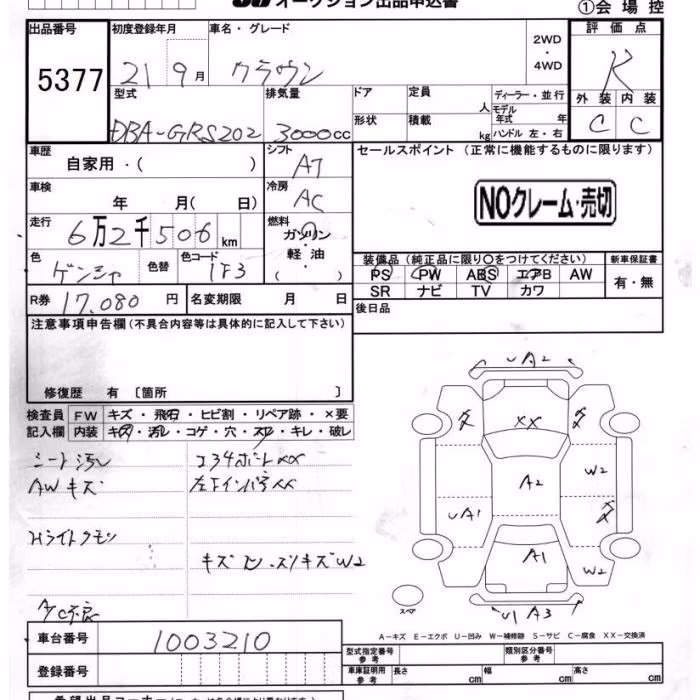 オークション出品申込書
①会場控
出品番号
5377
初度登録年月
21 9月
車名・グレード
クラウン
2WD
・
4WD
評価点
R
外装 内装
C C
型式
DBA-GRS202
排気量
3000cc
ドア
定員
人
形状
積載
kg
ディーラー・並行
モデル年式 年
ハンドル 左・右
車歴
自家用・( )
シフト
AT
セールスポイント (正常に機能するものに限ります)
NOクレーム・売切
車検
年 月( 日)
冷房
AC
走行
6万2千506km
燃料
ガソリン
軽油
( ・ )
色
ゲンシャ
色替
色コード
1F3
装備品 (純正品に限り○をつけてください)
新車保証書
PS PW ABS エアB AW
有・無
SR ナビ TV カワ
R券
17.080円
名変期限 月 日
後日品
注意事項申告欄(不具合内容等は具体的に記入して下さい)
修復歴 有 〔箇所 〕
検査員
記入欄
FW キズ・飛石・ヒビ割・リペア跡・×要
内装 キズ・汚レ・コゲ・穴・スレ・キレ・破レ
シート汚レ
AWキズ
Hライトクモリ
A/C不良
コア4サポートXX
左下インパネXX
キズ凹・スリキズW2
UA2
XX
A2
W2
UA1
A1
W2
U1 A3
スペア
A-キズ E-エクボ U-凹み W-補修跡 S-サビ C-腐食 XX-交換済
車台番号
1003210
登録番号
型式指定番号
参考
類別区分番号
参考
車庫証明用
参考
長さ cm
幅 cm
高さ cm